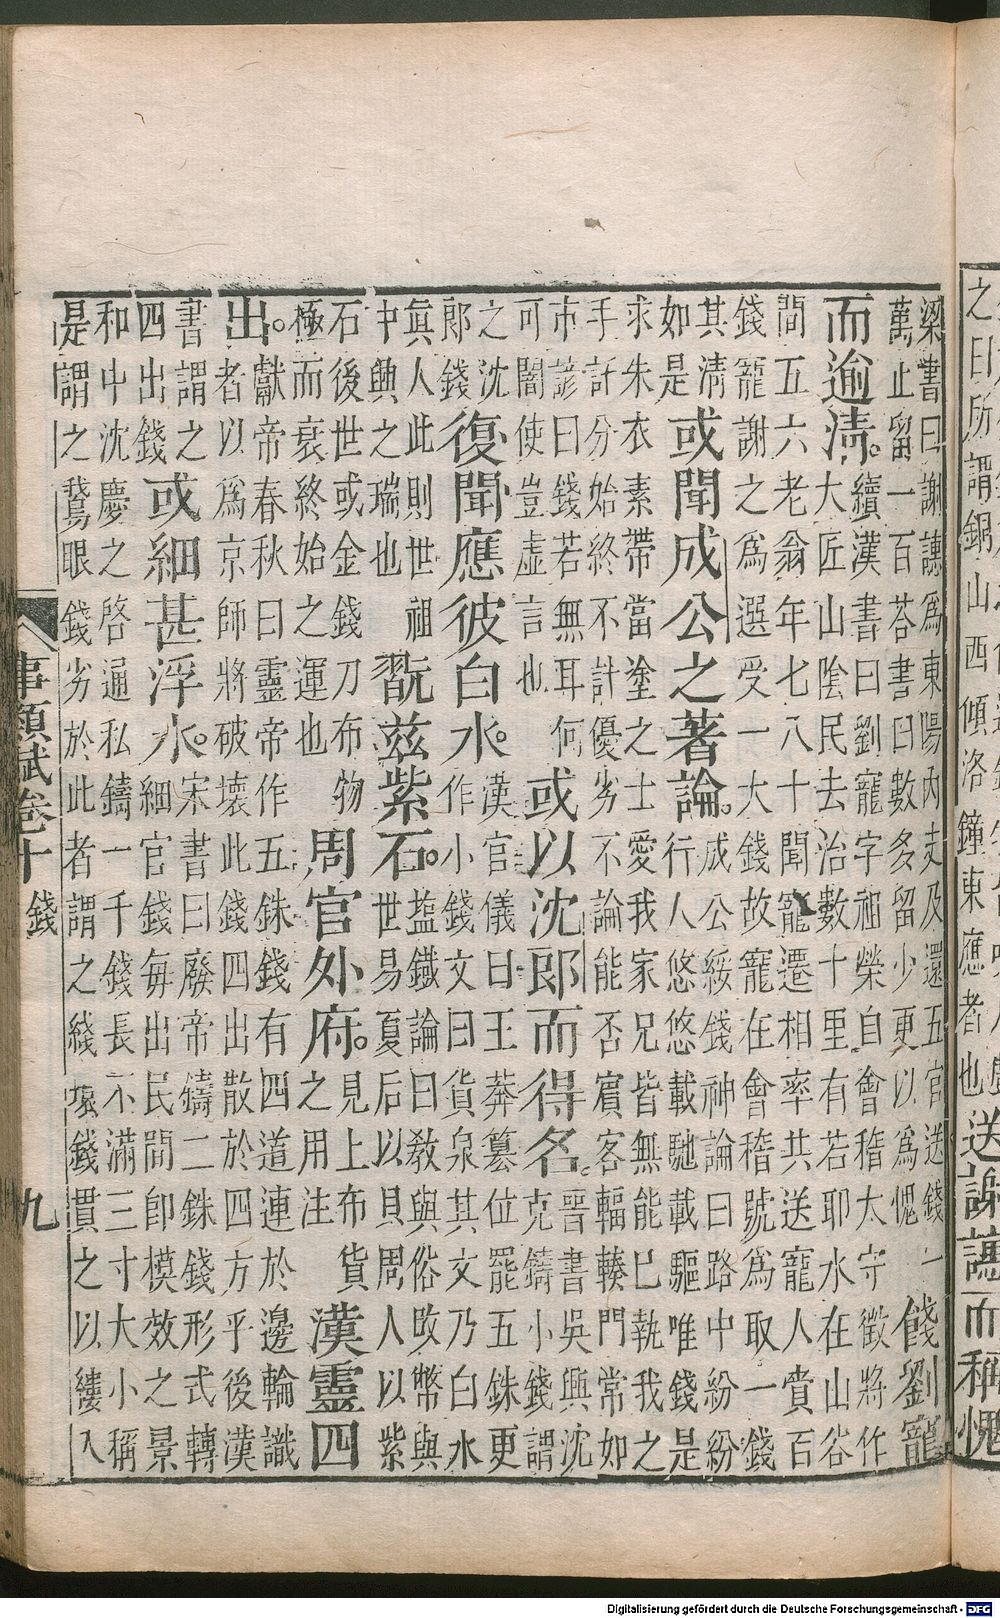 之日所謂銅山西傾洛鐘東應者也
送謝譓而稱愧
梁書曰謝譓爲東陽內史及還五官送錢一
萬止留一百荅書曰數多留少更以爲愧
餞劉寵
而逾清。
續漢書曰劉寵字祖榮自會稽太守徵將作
大匠山陰民去治數十里有若耶水在山谷
間五六老翁年七八十聞寵遷相率共送寵人賫百
錢寵謝之爲選受一大錢故寵在會稽號爲取一錢
其清
如是
或聞成公之著論。
成公綏錢神論曰路中紛紛
行人悠悠載馳載驅唯錢是
求朱衣素帶當塗之士愛我家兄皆無能已執我之
手託分始終不計優劣不論能否賓客輻輳門常如
市諺曰錢若無耳何
可闇使豈虛言也
或以沈郎而得名。
晉書吳興沈
克鑄小錢謂
之沈
郎錢
復聞應彼白水。
漢官儀曰王莽簒位罷五銖更
作小錢文曰貨泉其文乃白水
眞人此則世祖
中興之瑞也
翫兹紫石。
塩鐵論曰教與俗改幣與
世易夏后以貝周人以紫
石後世或金錢刀布物
極而衰終始之運也
周官外府。
見上布貨
之用注
漢靈四
出。
獻帝春秋曰靈帝作五銖錢有四道連於邊輪識
者以爲京師將破壞此錢四出散於四方乎後漢
書謂之
四出錢
或細甚浮水。
宋書曰廢帝鑄二銖錢形式轉
細官錢每出民間卽模效之景
和中沈慶之啓通私鑄一千錢長不滿三寸大小稱
是謂之鵞眼錢劣於此者謂之綖環錢貫之以縷入
事類賦卷十 錢 九
Digitalisierung gefördert durch die Deutsche Forschungsgemeinschaft - DFG